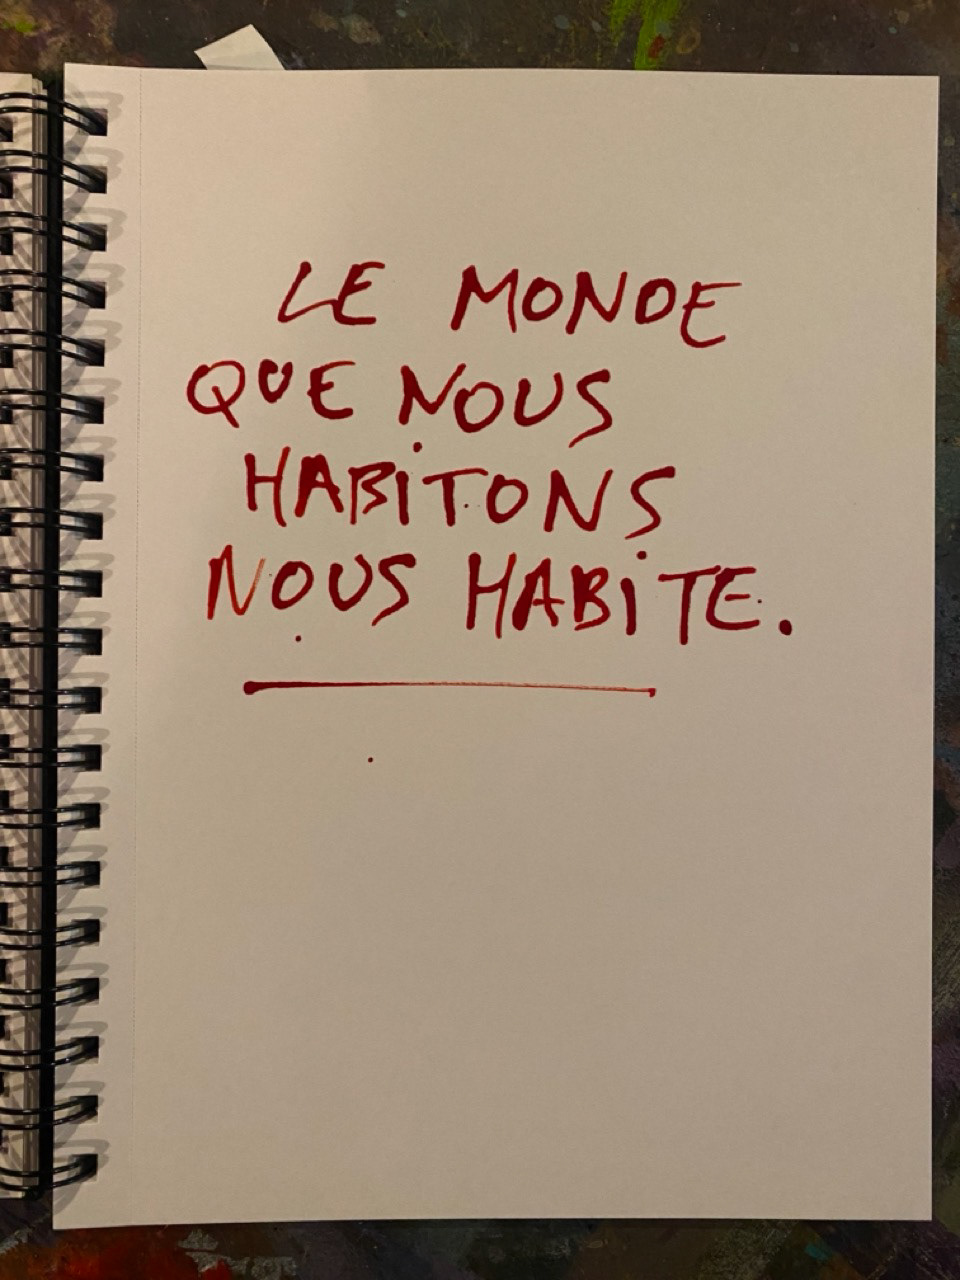 LE MONDE
QUE NOUS
HABiTONS
NOUS HABiTE.